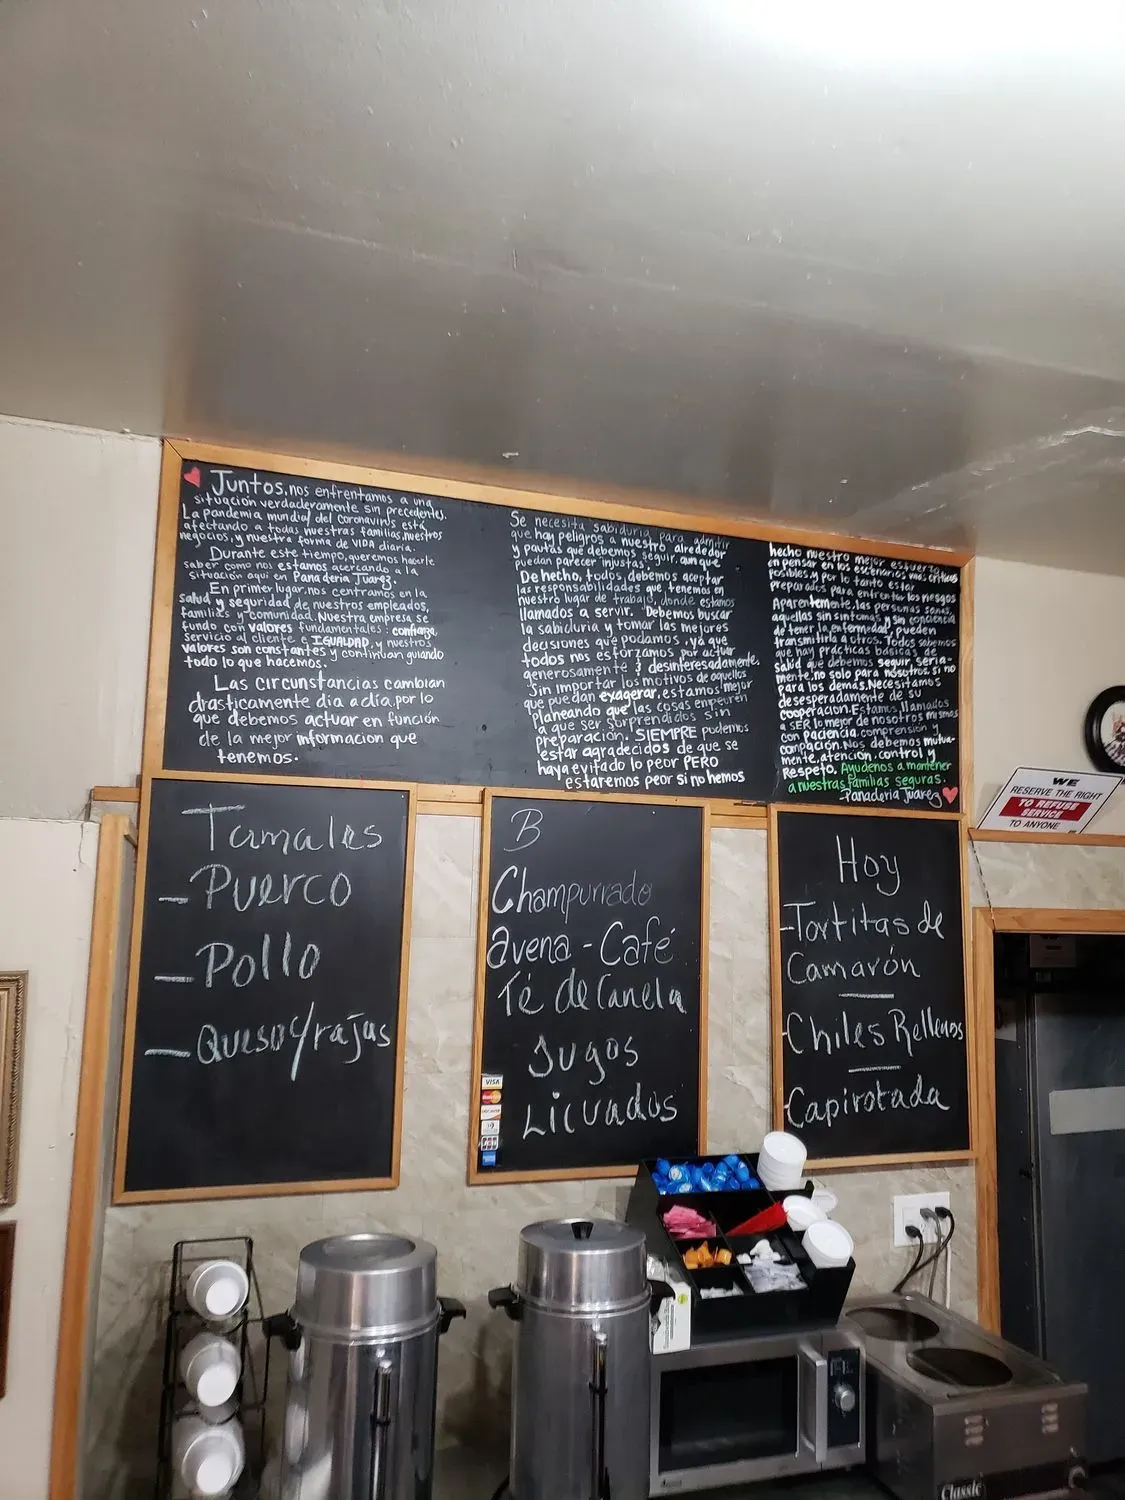 Juntos, nos enfrentamos a una
situación verdaderamente sin precedentes.
La pandemia mundial del coronavirus está
afectando a todas nuestras familias, nuestros
negocios, y nuestra forma de VIDA diaria.
Durante este tiempo, queremos hacerle
saber como nos estamos acercando a la
situación aquí en Panaderia Juarez.
En primer lugar, nos centramos en la
salud y seguridad de nuestros empleados,
familias y comunidad. Nuestra empresa se
fundo con valores fundamentales: confianza,
servicio al cliente e IGUALDAD, y nuestros
valores son constantes y continuan guiando
todo lo que hacemos.
Las circunstancias cambian
drasticamente dia a dia, por lo
que debemos actuar en función
de la mejor informacion que
tenemos.
Se necesita sabiduria para admitir
que hay peligros a nuestro alrededor
y pautas que debemos seguir, aunque
puedan parecer injustas.
De hecho, todos debemos aceptar
las responsabilidades que tenemos en
nuestro lugar de trabajo, donde estamos
llamados a servir. Debemos buscar
la sabiduria y tomar las mejores
decisiones que podamos, ya que
todos nos esforzamos por actuar
generosamente & desinteresadamente.
Sin importar los motivos de aquellos
que puedan exagerar, estamos mejor
planeando que las cosas empeoren
a que ser sorprendidos sin
preparación. SIEMPRE podemos
estar agradecidos de que se
haya evitado lo peor PERO
estaremos peor si no hemos
hecho nuestro mejor esfuerzo
en pensar en los escenarios más criticos
posibles y por lo tanto estar
preparados para enfrentar los riesgos
Aparentemente, las personas sanas,
aquellas sin sintomas y sin conciencia
de tener la enfermedad, pueden
transmitirla a otros. Todos sabemos
que hay prácticas básicas de
salud que debemos seguir seria-
mente, no solo para nosotros si no
para los demás. Necesitamos
desesperadamente de su
cooperación. Estamos llamados
a SER lo mejor de nosotros mismos
con paciencia, comprensión y
compación. Nos debemos mutua-
mente, atención, control y
Respeto. Ayudenos a mantener
a nuestras familias seguras.
-Panaderia Juarez
WE
RESERVE THE RIGHT
TO REFUSE
SERVICE
TO ANYONE
Tamales
- Puerco
- Pollo
- Queso c/rajas
B
Champurrado
avena - Café
Té de Canela
Jugos
Licuados
VISA
Hoy
-Tortitas de
Camarón
-Chiles Rellenos
-Capirotada
Classic